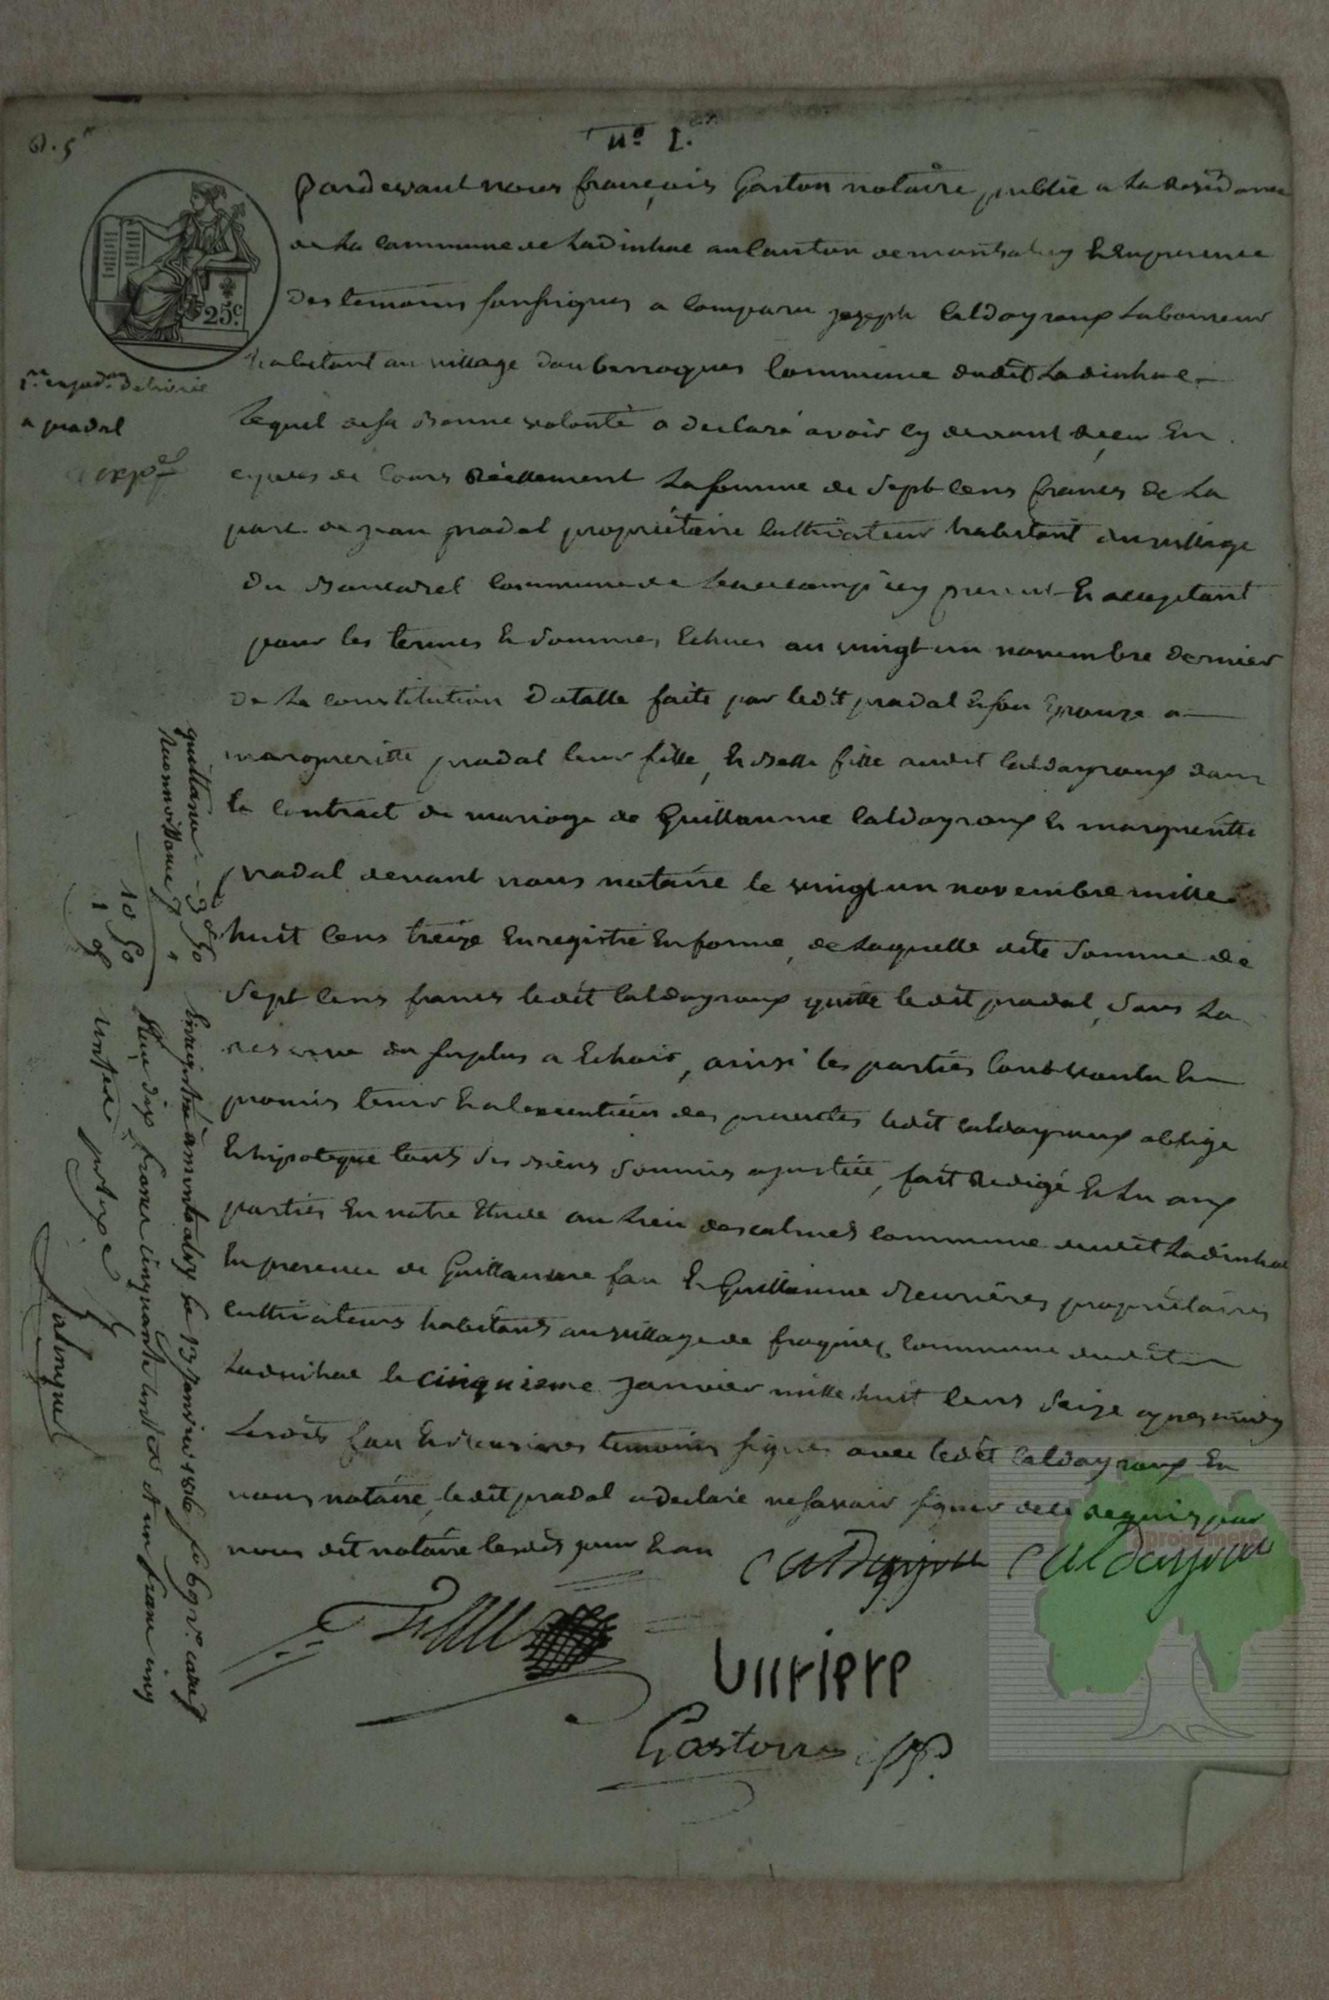 6.5
n.º 1.
25.c
pardevant nous françois Gaston notaire public a la Residance
de la commune de Ladinhac au canton de montsalvy En presence
des temoins soussignes a comparu joseph Caldayroux Laboureur
habitant au village commune dudit Ladinhac
Lequel de sa Bonne volonté a declaré avoir cy devant Reçeu En
espeses de cours Réellement La somme de sept cens francs de La
part de jean pradal propriétaire cultivateur habitant du village
du commune de Leucamp icy present Et acceptant
pour les termes Et sommes Echues au vingt un novembre dernier
de La constitution Dotalle faite par ledit pradal Et son Epouze a
margueritte pradal leur fille, Et Belle fille audit Caldayroux dans
le contract de mariage de Guillaume Caldayroux Et margueritte
pradal devant nous notaire le vingt un novembre mille
huit cens treize Enregistré En forme, de Laquelle dite somme de
sept cens francs ledit Caldayroux quitte ledit pradal, sans La
reserve du surplus a Echoir, ainsi les parties l'ont voulu Et
promis tenir Et a l'execution des presentes ledit Caldayroux oblige
Et hipoteque tous ses Biens soumis a justice, fait Redigé Et Lu aux
parties En notre Etude au Lieu descalmels commune dudit Ladinhac
En presence de Guillaume fau Et Guillaume propriétaires
cultivateurs habitans au village de commune dudit
Ladinhac le cinquieme janvier mille huit cens seize apres midy
Lesdits fau Et temoins signes avec ledit Caldayroux Et
nous notaire, ledit pradal a declaré ne savoir signer de ce Requis par
nous dit notaire lesdits jour Et an
Caldayrou
fau
Gaston
1.re expad.on Delivrée
a pradal
exp.
quittance 3 50
Reconnoissance 7 "
10 50
1 05
Enregistré a montsalvy le 13 janvier 1816 f.o 69 v.o case
Reçu dix francs cinquante centimes et un franc cinq
centimes pour
progenere